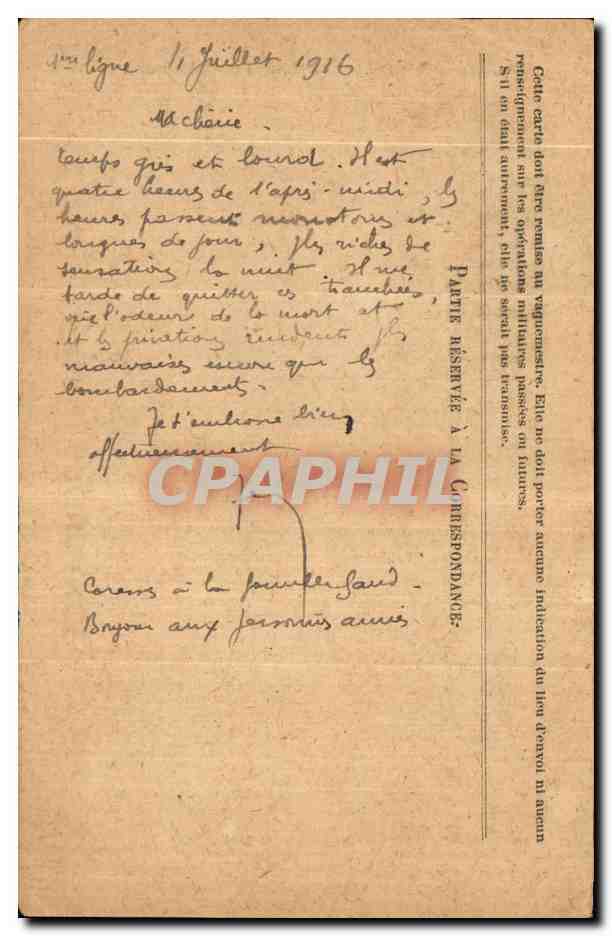 1ère ligne 11 Juillet 1916
Ma chérie.
temps gris et lourd. Il est
quatre heures de l'après-midi, les
heures passent monotones et
longues de jour, plus riches de
sensations la nuit. Il me
tarde de quitter ces tranchées,
où l'odeur de la mort et
et les privations rendent plus
mauvaises encore que les
bombardements.
Je t'embrasse bien
affectueusement
Caresses à la famille
Bonjour aux personnes amies
PARTIE RÉSERVÉE À LA CORRESPONDANCE.
Cette carte doit être remise au vaguemestre. Elle ne doit porter aucune indication du lieu d'envoi ni aucun
renseignement sur les opérations militaires passées ou futures.
S'il en était autrement, elle ne serait pas transmise.
CPAPHIL